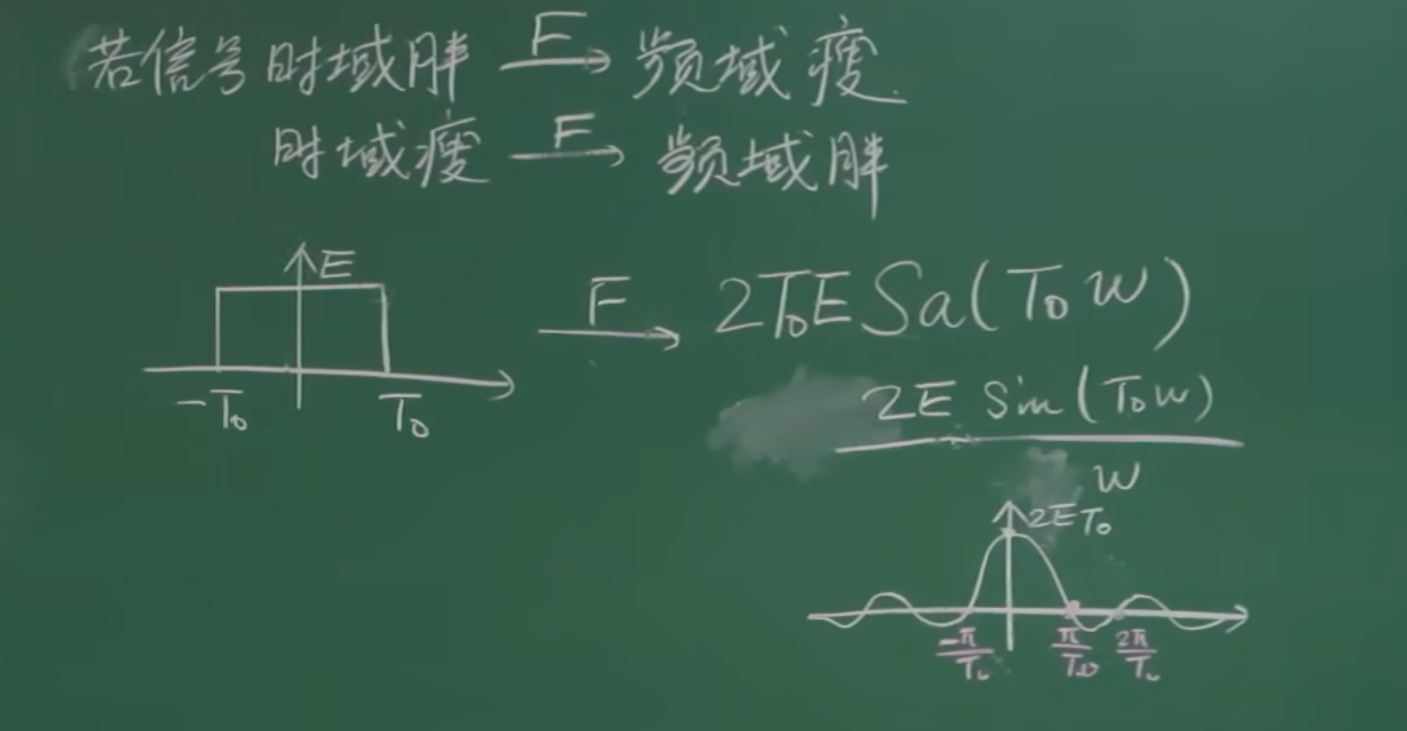 若信号时域胖 F→ 频域瘦
时域瘦 F→ 频域胖
E
-T₀ T₀
F→ 2T₀E Sa(T₀w)
2E Sin(T₀w)
w
2ET₀
-π/T₀ π/T₀ 2π/T₀